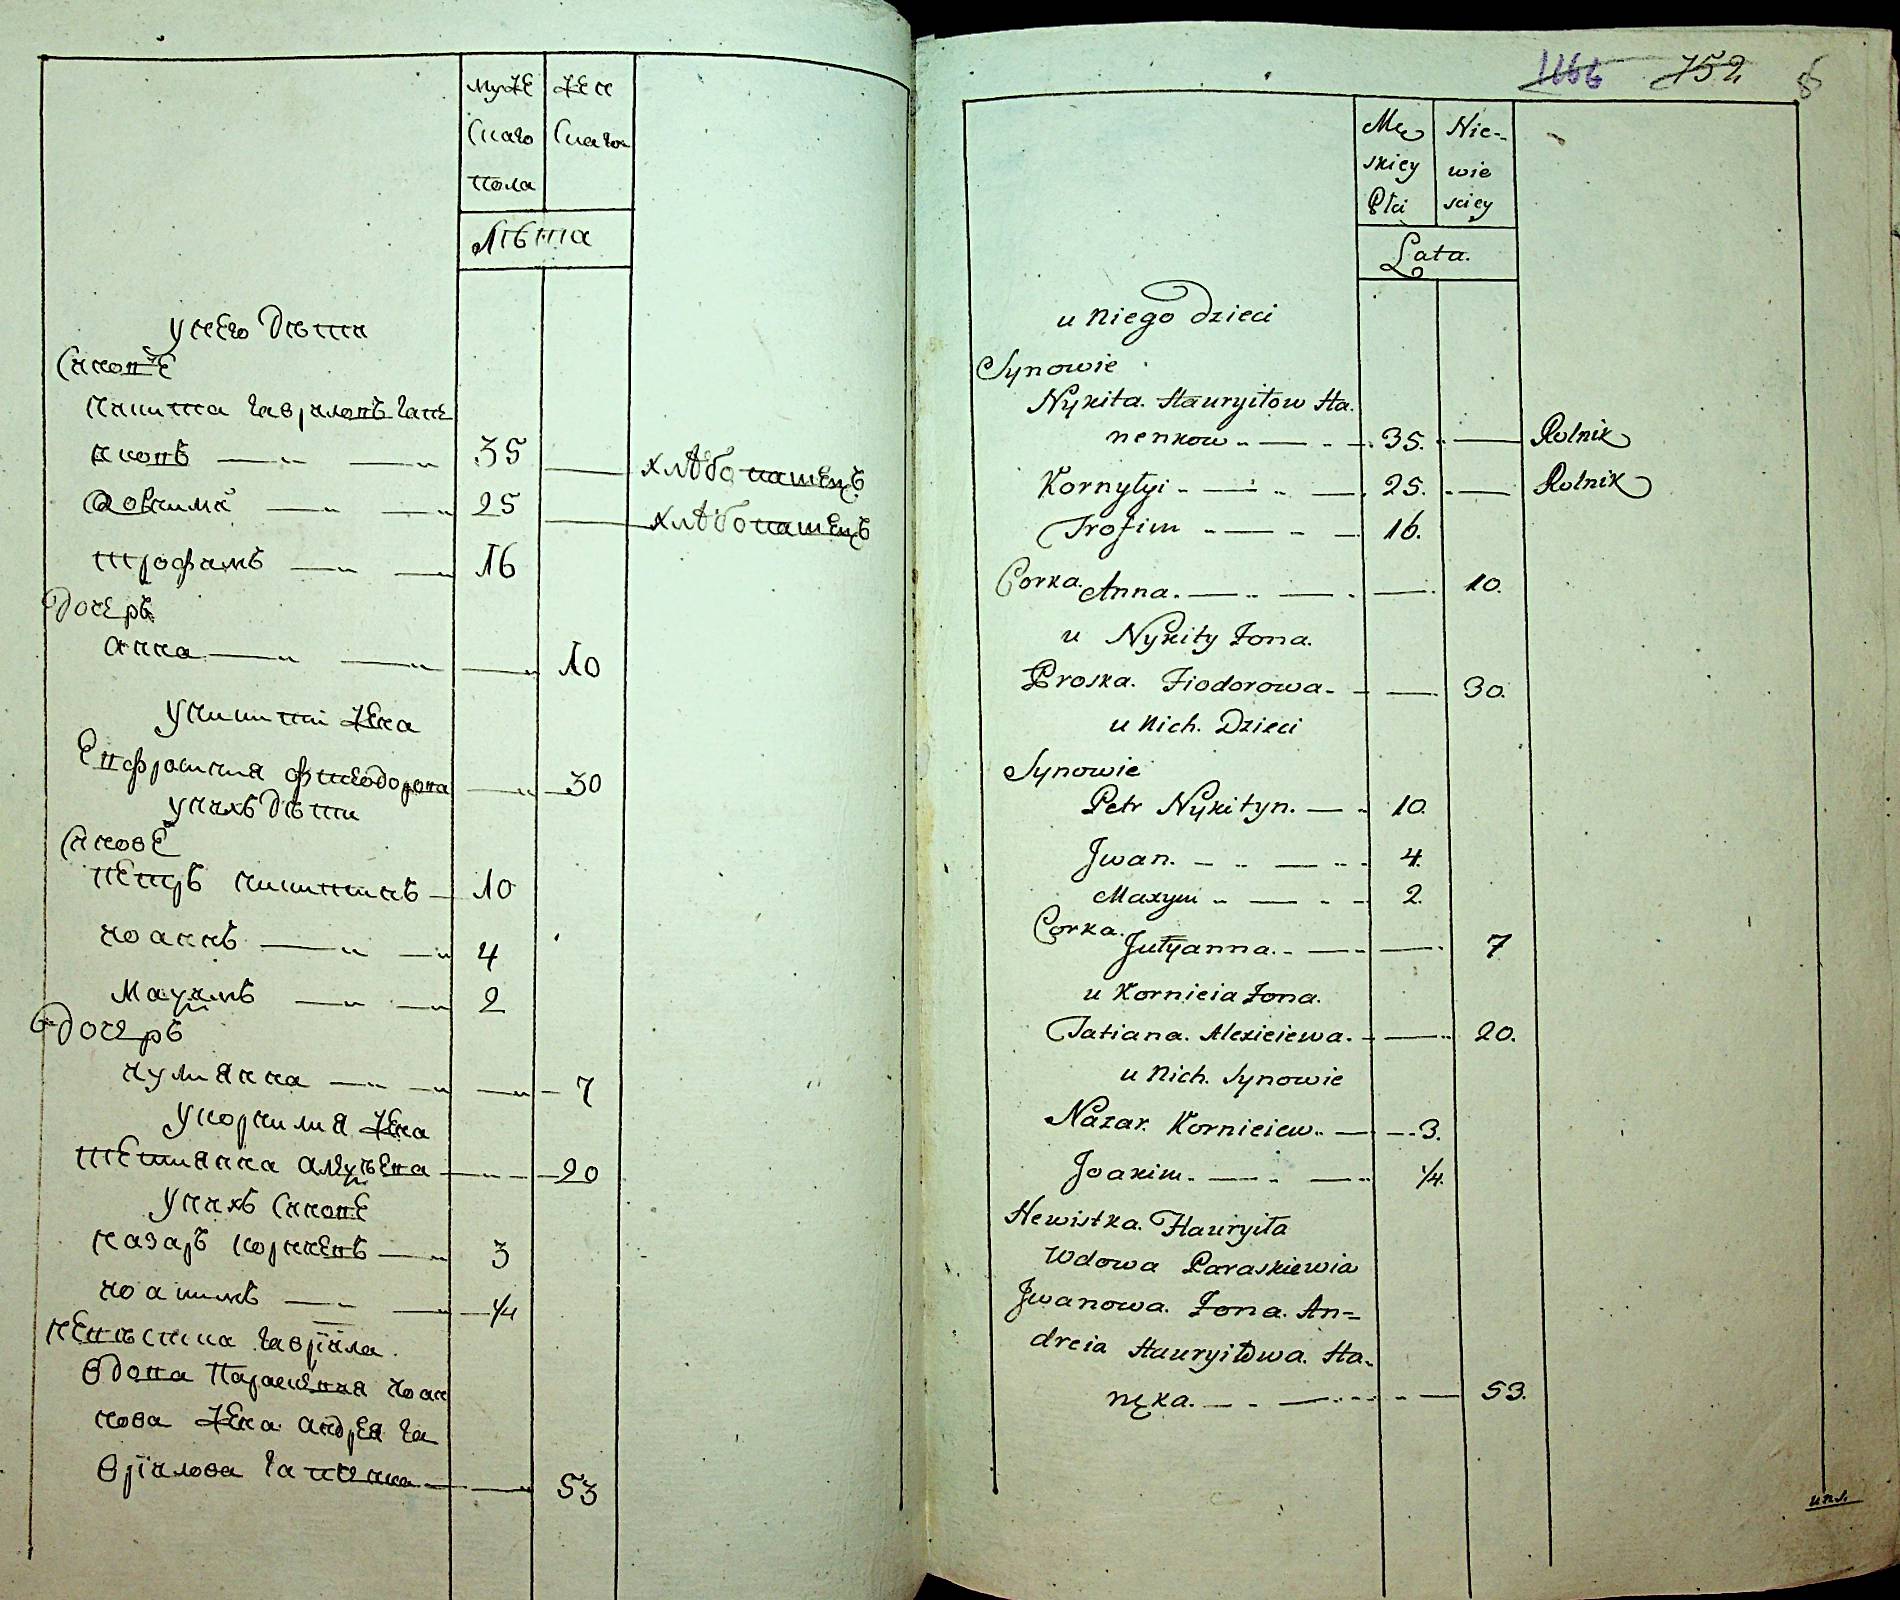 муже жен
скаго скаго
пола
лѣта
у него дѣти
Синовѣ
никита гавриловъ гане
нковъ 35 хлѣбопашецъ
25 хлѣбопашецъ
трофимъ 16
дочерь
анна 10
у никити жена
Евфросиния фтеодорова 30
у нихъ дѣти
Синове
петръ никитинъ 10
иоаннъ 4
Махимъ 2
дочерь
иулиянна 7
у корнилия жена
тетиянна 20
у нихъ Синовѣ
назаръ корнеевъ 3
иоакимъ 1/4
невѣстка гавріила
вдова Параскевия иоан
нова жена андрея га
вріилова 53
1166 752 6
Mę Nie-
skiey wie
Płci sciey
Lata.
u Niego Dzieci
Synowie
Nykita. Hauryiłow Ha.
nenkow 35. Rolnik
Kornyłyi 25. Rolnik
Trofim 16.
Corka. Anna. 10.
u Nykity Żona.
Proska. Fiodorowa 30.
u Nich. Dzieci
Synowie
Petr Nykityn. 10.
Jwan. 4.
Maxym 2.
Corka.
Jułyanna. 7
u Kornieia Żona.
Tatiana. Alexieiewa. 20.
u Nich. Synowie
Nazar. Kornieiew. 3.
Joakim. 1/4.
Newistka. Hauryiła
Wdowa Paraskiewia
Jwanowa. Żona. An=
dreia Hauryiłowa. Ha.
nęka. 53.